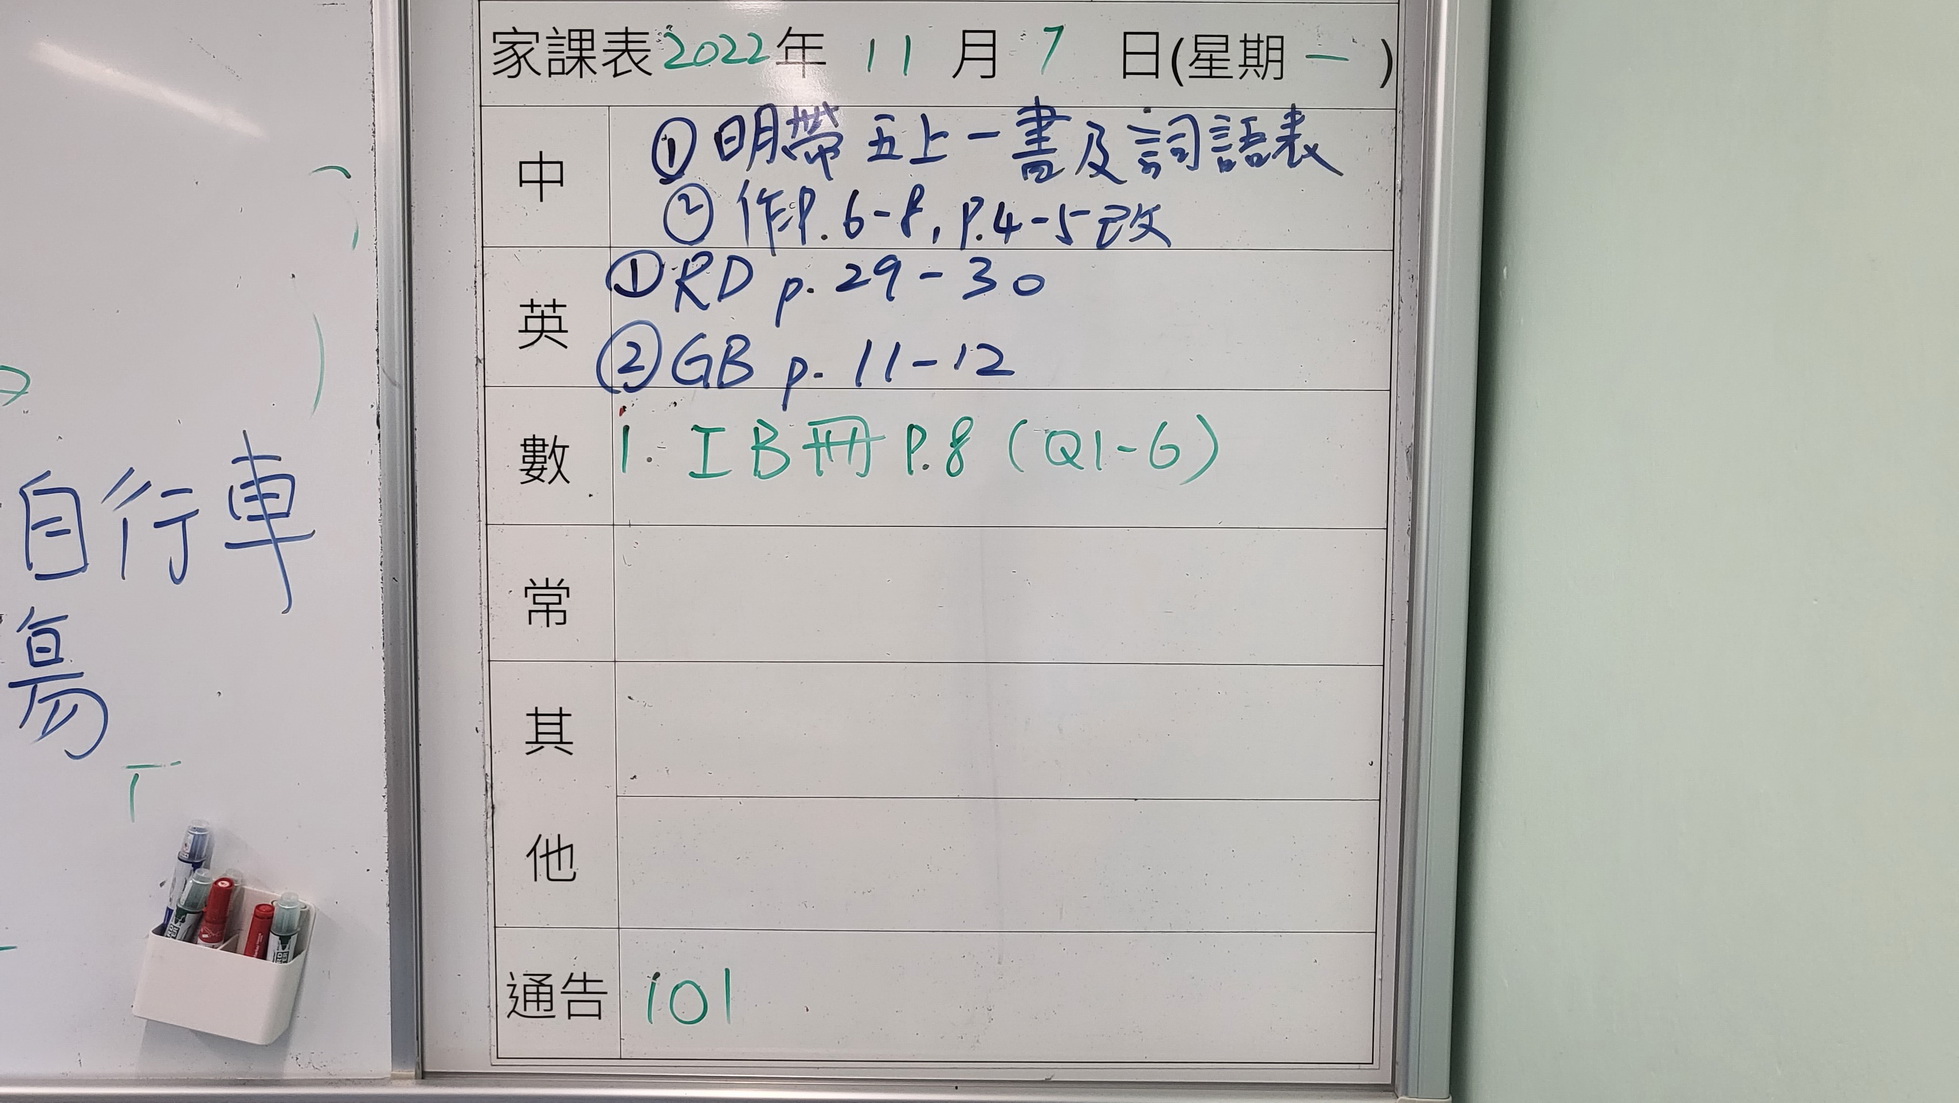 家課表2022年 11 月 7 日(星期 一 )
中
① 明帶五上一書及詞語表
② 作P.6-8, P.4-5改
英
① RD p. 29-30
② GB p. 11-12
數
1. IB冊 P.8 (Q1-6)
常
其
他
通告 101
自行車